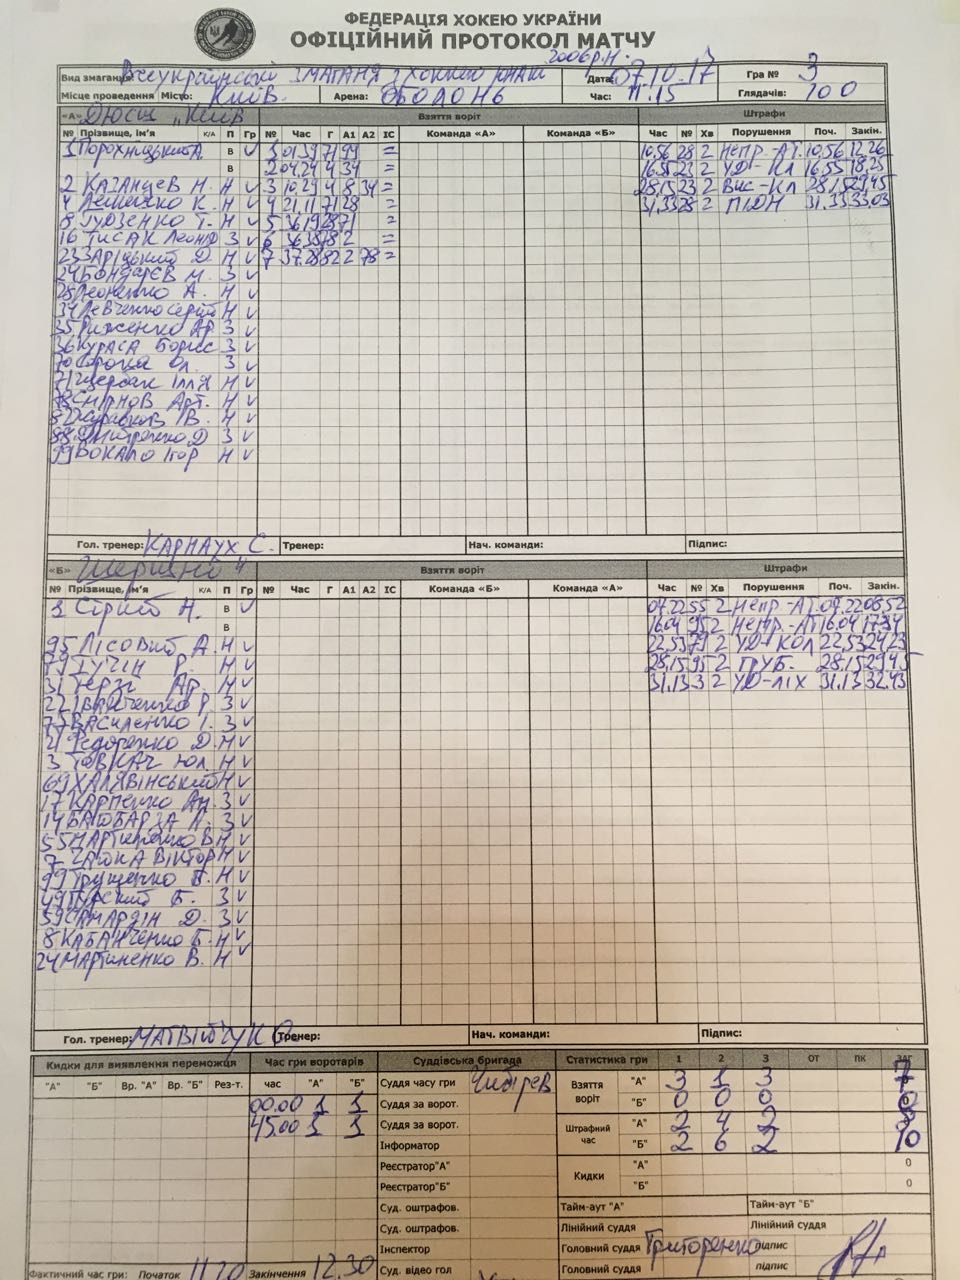 ФЕДЕРАЦІЯ ХОКЕЮ УКРАЇНИ
ОФІЦІЙНИЙ ПРОТОКОЛ МАТЧУ
2006 р.н.
Вид змагання Всеукраїнські змагання з хокею Дата: 07.10.17 Гра № 3
Місце проведення Місто: Київ. Арена: ОБОЛОНЬ Час: 11.15 Глядачів: 100
«А» ДЮСШ "Київ Взяття воріт Штрафи
№ Прізвище, ім'я К/А П Гр № Час Г А1 А2 ІС Команда «А» Команда «Б» Час № Хв Порушення Поч. Закін.
1 А. В V 1 01.39 71 99 = 10.56 28 2 НЕПР.-АТ. 10.56 12.26
В 2 04.24 4 34 = 16.55 23 2 УД-КЛ 16.55 18.25
2 КАЗАНЦЕВ Н. Н V 3 10.29 4 8 34 = 28.15 23 2 ВИС-КЛ 28.15 29.45
4 К. Н V 4 21.11 71 28 = 31.33 28 2 31.33 33.03
8 ГУДЗЕНКО Т. Н V 5 36.19 28 71 =
16 ТИСАК Леонід З V 6 36.38 78 2 =
23 ЗАРІЦЬКИЙ Д Н V 7 37.28 82 2 78 =
24 БОНДАРЄВ М. З V
28 Леоненко А. Н V
34 Левченко Сергій Н V
35 Риженко Ар. З V
36 КУРАСА Борис З V
70 Сорока Ол. З V
71 Щербак Ілля Н V
78 СМІРНОВ Арт. Н V
82 Журавков ІВ. Н V
88 Дмитренко Д З V
99 ВОКАЛО Ігор Н V
Гол. тренер: КАРНАУХ С. Тренер: Нач. команди: Підпис:
«Б» Взяття воріт Штрафи
№ Прізвище, ім'я К/А П Гр № Час Г А1 А2 ІС Команда «Б» Команда «А» Час № Хв Порушення Поч. Закін.
1 Сірий Н. В V 07.22 55 2 НЕПР.-АТ. 07.22 08.52
В 16.04 95 2 НЕПР.-АТ 16.04 17.34
95 ЛІСОВИЙ А. Н V 22.53 79 2 УД-КОЛ 22.53 24.23
79 ГУЧІН Р. Н V 28.15 95 2 ГРУБ. 28.15 29.45
31 Терзі Ар. Н V 31.13 3 2 31.13 32.43
22 ІВАНЧЕНКО Р. З V
77 ВАСИЛЕНКО І. З V
21 Федоренко Д. Н V
3 ТОВКАЧ Юл. Н V
69 ХАЛЯВІНСЬКИЙ Н V
17 КАРПЕНКО Ан. З V
14 А. З V
55 МАРТИНЕНКО В. Н V
7 ВІКТОР Н V
99 Грущенко Н V
49 Гурский Б. З V
59 САМАРДІН Д. З V
8 КАБАНЧЕНКО Б. Н V
24 МАРТИНЕНКО В. Н V
Гол. тренер: МАТВІЙЧУК О Тренер: Нач. команди: Підпис:
Кидки для виявлення переможця Час гри воротарів Суддівська бригада Статистика гри 1 2 3 ОТ ПК ЗАГ
"А" "Б" Вр. "А" Вр. "Б" Рез-т. час "А" "Б" Суддя часу гри Чибірев Взяття воріт "А" 3 1 3 7
00.00 1 1 Суддя за ворот. "Б" 0 0 0 0
45.00 1 1 Суддя за ворот. Штрафний час "А" 2 4 2 8
Інформатор "Б" 2 6 2 10
Реєстратор"А" Кидки "А" 0
Реєстратор"Б" "Б" 0
Суд. оштрафов. Тайм-аут "А" Тайм-аут "Б"
Суд. оштрафов. Лінійний суддя Лінійний суддя
Інспектор Головний суддя Григоренко підпис
Фактичний час гри: Початок 11.20 Закінчення 12.30 Суд. відео гол Головний суддя підпис